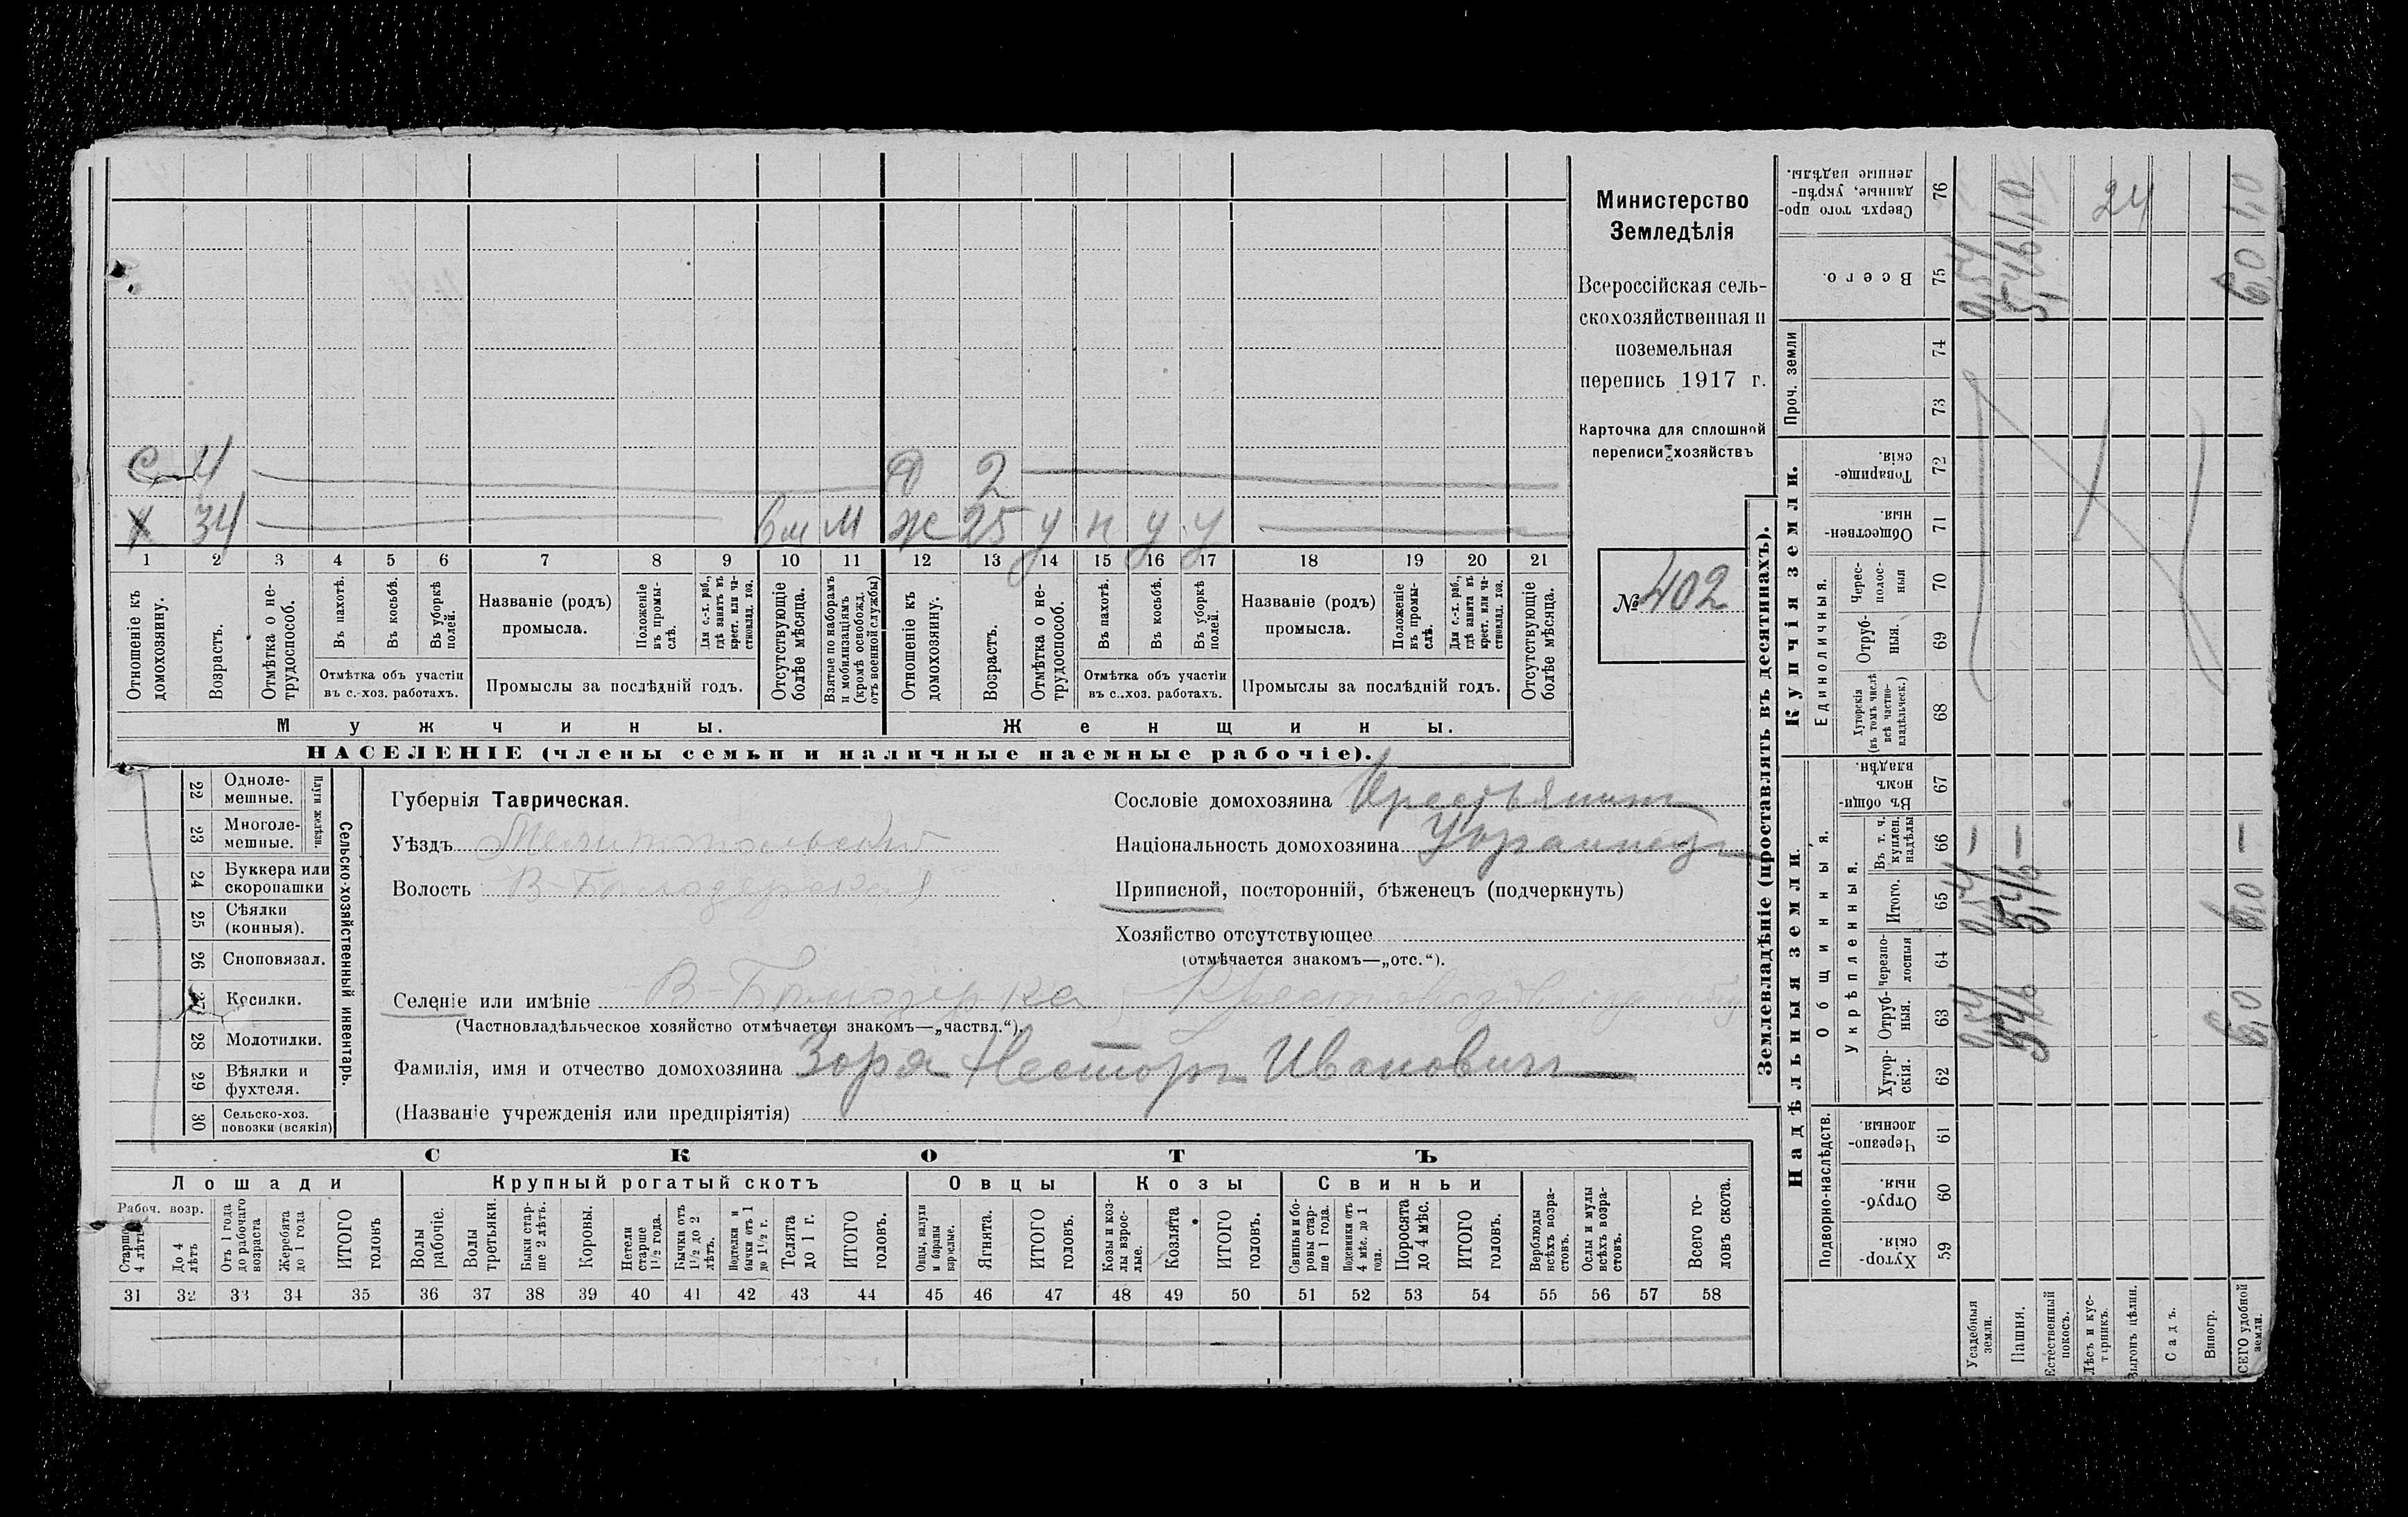 Министерство
Земледѣлія
Всероссійская сель-
скохозяйственная и
поземельная
перепись 1917 г.
Карточка для сплошной
переписи хозяйствъ
№ 402
С 4 Д 2
Х 34 6 м М Ж 25 у п у у
1 2 3 4 5 6 7 8 9 10 11 12 13 14 15 16 17 18 19 20 21
Отношеніе къ домохозяину.
Возрастъ.
Отмѣтка о не-трудоспособ.
Въ пахотѣ.
Въ косьбѣ.
Въ уборкѣ полей.
Отмѣтка объ участіи
въ с.-хоз. работахъ.
Названіе (родъ)
промысла.
Положеніе въ промы-слѣ.
Для с.-х. раб., гдѣ занятъ въ крест. или ча-стновлад. хоз.
Промыслы за послѣдній годъ.
Отсутствующіе болѣе мѣсяца.
Взятые по наборамъ и мобилизаціямъ (кромѣ освобожд. отъ военной службы)
Отношеніе къ домохозяину.
Возрастъ.
Отмѣтка о не-трудоспособ.
Въ пахотѣ.
Въ косьбѣ.
Въ уборкѣ полей.
Отмѣтка объ участіи
въ с.-хоз. работахъ.
Названіе (родъ)
промысла.
Положеніе въ промы-слѣ.
Для с.-х. раб., гдѣ занята въ крест. или ча-стновлад. хоз.
Промыслы за послѣдній годъ.
Отсутствующіе болѣе мѣсяца.
Мужчины. Женщины.
НАСЕЛЕНІЕ (члены семьи и наличные наемные рабочіе).
22 Одноле-мешные.
23 Многоле-мешные.
Плуги желѣзн.
24 Буккера или скоропашки
25 Сѣялки (конныя).
26 Сноповязал.
27 Косилки.
28 Молотилки.
29 Вѣялки и фухтеля.
30 Сельско-хоз. повозки (всякія)
Сельско-хозяйственный инвентарь.
Губернія Таврическая.
Уѣздъ Мелитопольскій
Волость В-Бѣлозерская
Селеніе или имѣніе В-Бѣлозерка
(Частновладѣльческое хозяйство отмѣчается знакомъ—„частвл.“).
Фамилія, имя и отчество домохозяина Зоря Несторъ Ивановичъ
(Названіе учрежденія или предпріятія)
Сословіе домохозяина Крестьянинъ
Національность домохозяина Украинецъ
Приписной, посторонній, бѣженецъ (подчеркнуть)
Хозяйство отсутствующее
(отмѣчается знакомъ—„отс.“).
СКОТЪ
Лошади Крупный рогатый скотъ Овцы Козы Свиньи
Рабоч. возр.
Старше 4 лѣтъ
До 4 лѣтъ
Отъ 1 года до рабочаго возраста
Жеребята до 1 года
ИТОГО головъ
Волы рабочіе.
Волы третьяки.
Быки стар-ше 2 лѣтъ.
Коровы.
Нетели старше 1½ года.
Бычки отъ 1½ до 2 лѣтъ.
Подтелки и бычки отъ 1 до 1½ г.
Телята до 1 г.
ИТОГО головъ.
Овцы, валухи и бараны взрослые.
Ягнята.
ИТОГО головъ.
Козы и коз-лы взрос-лые.
Козлята
ИТОГО головъ.
Свиньи и бо-ровы стар-ше 1 года.
Подсвинки отъ 4 мѣс. до 1 года.
Поросята до 4 мѣс.
ИТОГО головъ.
Верблюды всѣхъ возра-стовъ.
Ослы и мулы всѣхъ возра-стовъ.
Всего го-ловъ скота.
31 32 33 34 35 36 37 38 39 40 41 42 43 44 45 46 47 48 49 50 51 52 53 54 55 56 57 58
Землевладѣніе (проставлять въ десятинахъ).
Надѣльныя земли.
Подворно-наслѣдств.
Хутор-скія. 59
Отруб-ныя. 60
Черезпо-лосныя. 61
Общинныя.
Укрѣпленныя.
Хутор-скія. 62
Отруб-ныя. 63 0,54 5,46 6,0
Черезпо-лосныя 64
Итого. 65 0,54 5,46 6,0
Въ т. ч. куплен. надѣлы 66 — — —
Въ общи-номъ владѣн. 67
Купчія земли.
Единоличныя.
Хуторскія (въ томъ числѣ всѣ частно-владѣльческ.) 68
Отруб-ныя. 69
Черес-полос-ныя 70
Обществен-ныя 71
Товарище-скія. 72
Проч. земли 73 74
Всего. 75 0,54 5,46 6,0
Сверхъ того про-данные, укрѣп-ленные надѣлы. 76 1,0 24 1,0
Усадебныя земли.
Пашня.
Естественный покосъ.
Лѣсъ и кус-тарникъ.
Выгонъ цѣлин.
Садъ.
Виногр.
ВСЕГО удобной земли.